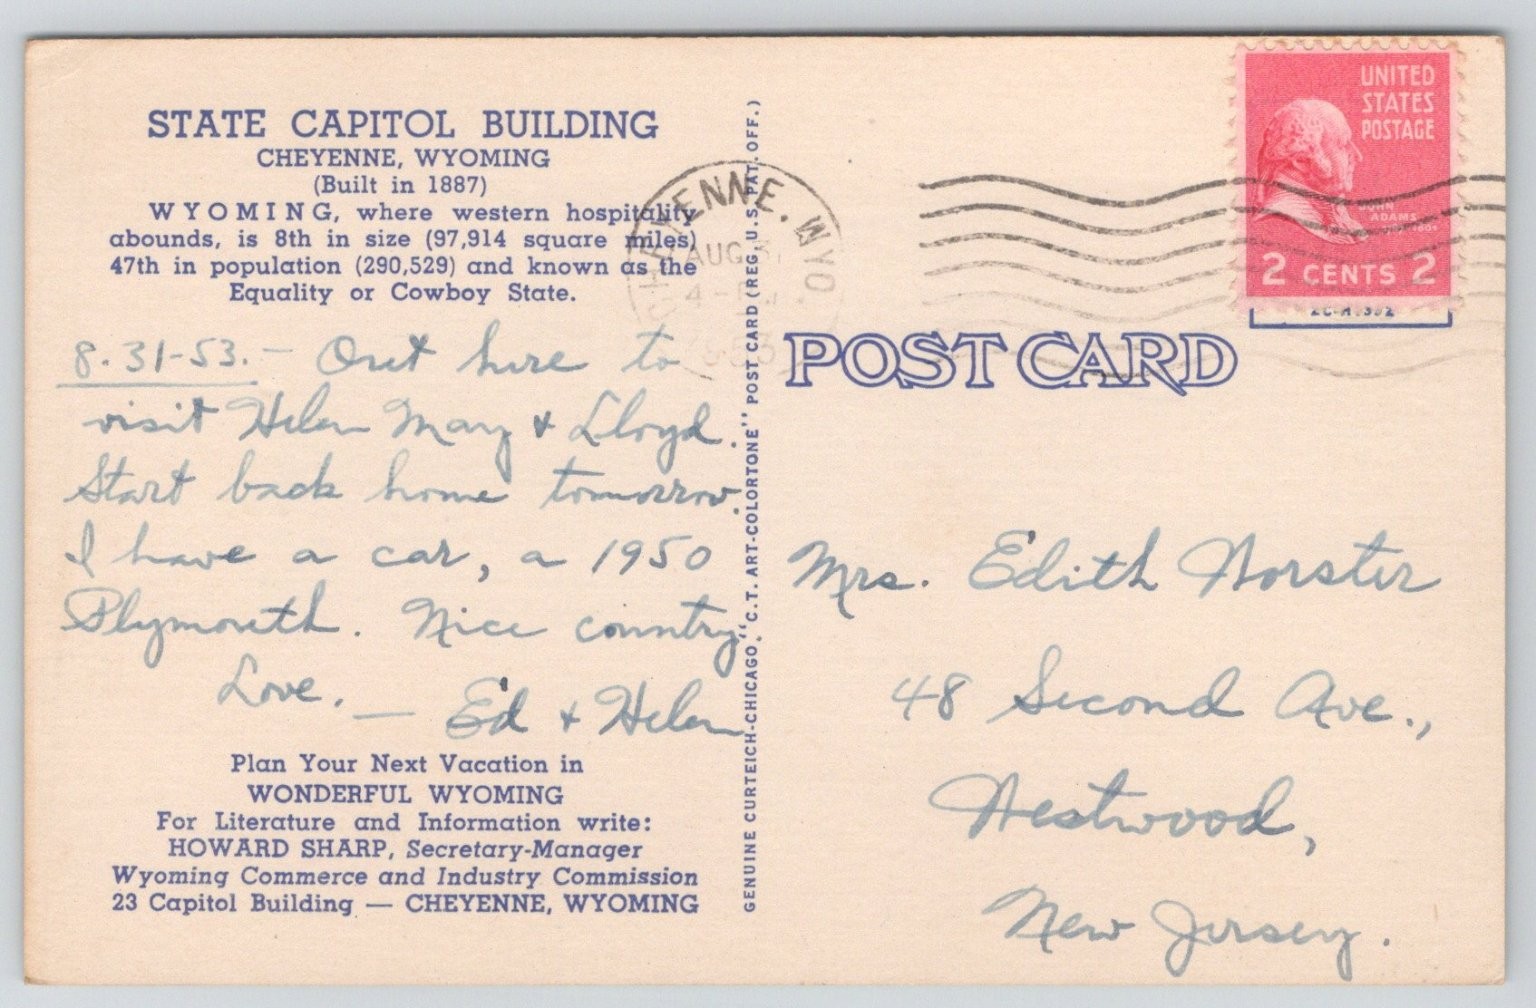 STATE CAPITOL BUILDING
CHEYENNE, WYOMING
(Built in 1887)
WYOMING, where western hospitality
abounds, is 8th in size (97,914 square miles)
47th in population (290,529) and known as the
Equality or Cowboy State.
8-31-53. — Out here to
visit Helen May & Lloyd.
Start back home tomorrow.
I have a car, a 1950
Plymouth. Nice country.
Love. — Ed & Helen
Plan Your Next Vacation in
WONDERFUL WYOMING
For Literature and Information write:
HOWARD SHARP, Secretary-Manager
Wyoming Commerce and Industry Commission
23 Capitol Building — CHEYENNE, WYOMING
GENUINE CURTEICH-CHICAGO "C.T. ART-COLORTONE" POST CARD (REG. U.S. PAT. OFF.)
CHEYENNE, WYO.
AUG 31
4-
1953
UNITED
STATES
POSTAGE
JOHN
ADAMS
2 CENTS 2
POST CARD
Mrs. Edith
48 Second Ave.,
Westwood,
New Jersey.